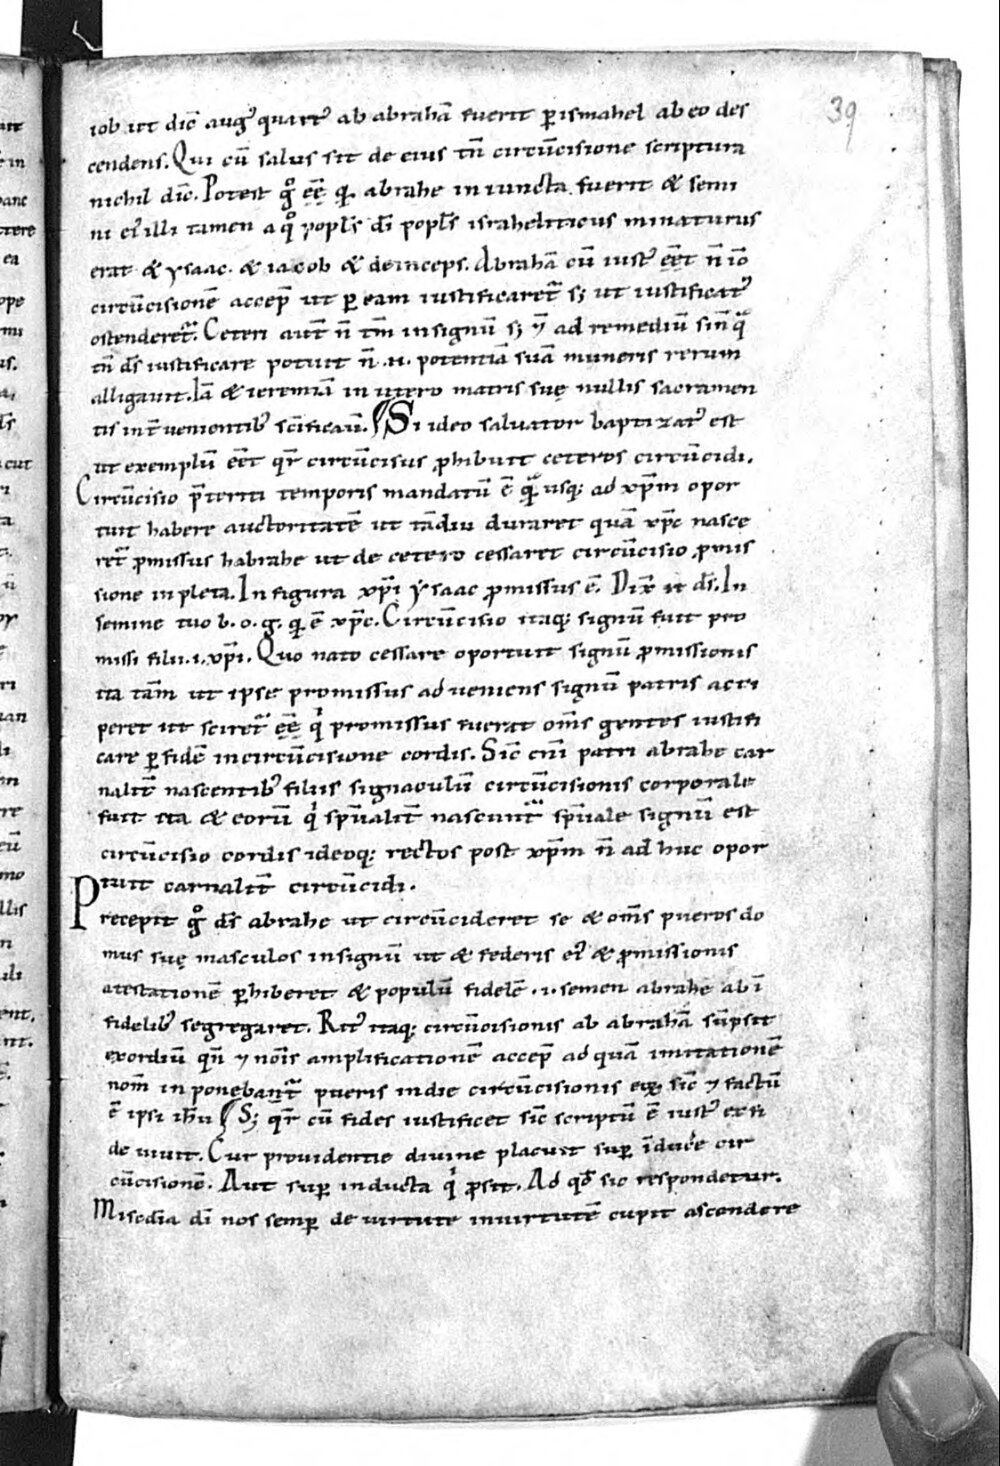 39
iob ut dic̄ aug᷒ quart᷒ ab abrahā fuerit ꝑ ismahel ab eo des
cendens. Qui cū salus sit de eius tn̄ circūcisione scriptura
nichil dic̄. Potest gͦ eē̄ qꝫ abrahe iniuncta fuerit & semi
ni ei᷒ illi tamen a qͦ popl̄s dī popl̄s israheliticus minaturus
erat & ysaac. & iacob & deinceps. Abrahā cū iust᷒ eēt n̄ iō
circūcisionē accep̄ ut ꝑ eam iustificaret᷑ sꝫ ut iustificat᷒
ostenderet᷑. Ceteri aut̄ n̄ tm̄ in signū sꝫ ⁊ ad remediū sin̄ qᷓ
tn̄ d̄s iustificare potuit n̄ .n. potentiā suā muneris rerum
alligauit. Iā & ieremiā in utero matris suę nullis sacramen
tis int̄uenientib᷒ sc̄ificauı̄. Si ideo saluator baptizat᷒ est
ut exemplū eēt qr̄ circūcisus ꝓhibuit ceteros circūcidi.
Circūcisio p̄teriti temporis mandatū ē qᷓ usqꝫ ad xp̄m opor
tuit habere auctoritatē ut tādiu duraret quā xp̄c nasce
ret᷑ ꝓmissus habrahe ut de cetero cessaret circūcisio ꝓmis
sione inpleta. In figura xp̄i ysaac ꝓmissus ē. Dix̄ it d̄s. In
semine tuo b. o. g. qꝫ ē xp̄c. Circūcisio itaqꝫ signū fuit pro
missi filii .i. xp̄i. Quo nato cessare oportuit signū ꝓmissionis
ita tam̄ ut ipse promissus adueniens signū patris acci
peret ut sciret᷑ eē̄ qͥ promissus fuerat om̄s gentes iustifi
care ꝑ fidē in circūcisione cordis. Sic̄ eni̅ patri abrahe car
nalit̄ nascentib᷒ filiis signaculū circūcisionis corporale
fuit ita & eorū qͥ sp̄ualit̄ nascunt᷑ sp̄uale signū est
circūcisio cordis ideoqꝫ rectos post xp̄m n̄ adhuc opor
tuit carnalit̄ circūcidi.
Precepit gͦ d̄s abrahe ut circūcideret se & om̄s pueros do
mus suę masculos in signū ut & federis ei᷒ & ꝓmissionis
atestationē ꝑhiberet & populū fidelē .i. semen abrahe ab ī
fidelib᷒ segregaret. Rit᷒ itaqꝫ circūcisionis ab abrahā sūpsit
exordiū qn̄ ⁊ nōis amplificationē accep̄ ad quā imitationē
nom̄ inponebant᷑ pueris in die circūcisionis eoꝝ sic̄ ⁊ factū
ē ipsi ih̄u Sꝫ qr̄ cū fides iustificet sic̄ scriptū ē iust᷒ ex fi
de uiuit. Cur prouidentie diuine placuit suꝑ īducere cir
cūcisionē. Aut suꝑ inducta qͥ ꝓsit. Ad qd̄ sic respondetur.
Misc̄dia dī nos semꝑ de uirtute in uirtutē cupit ascendere